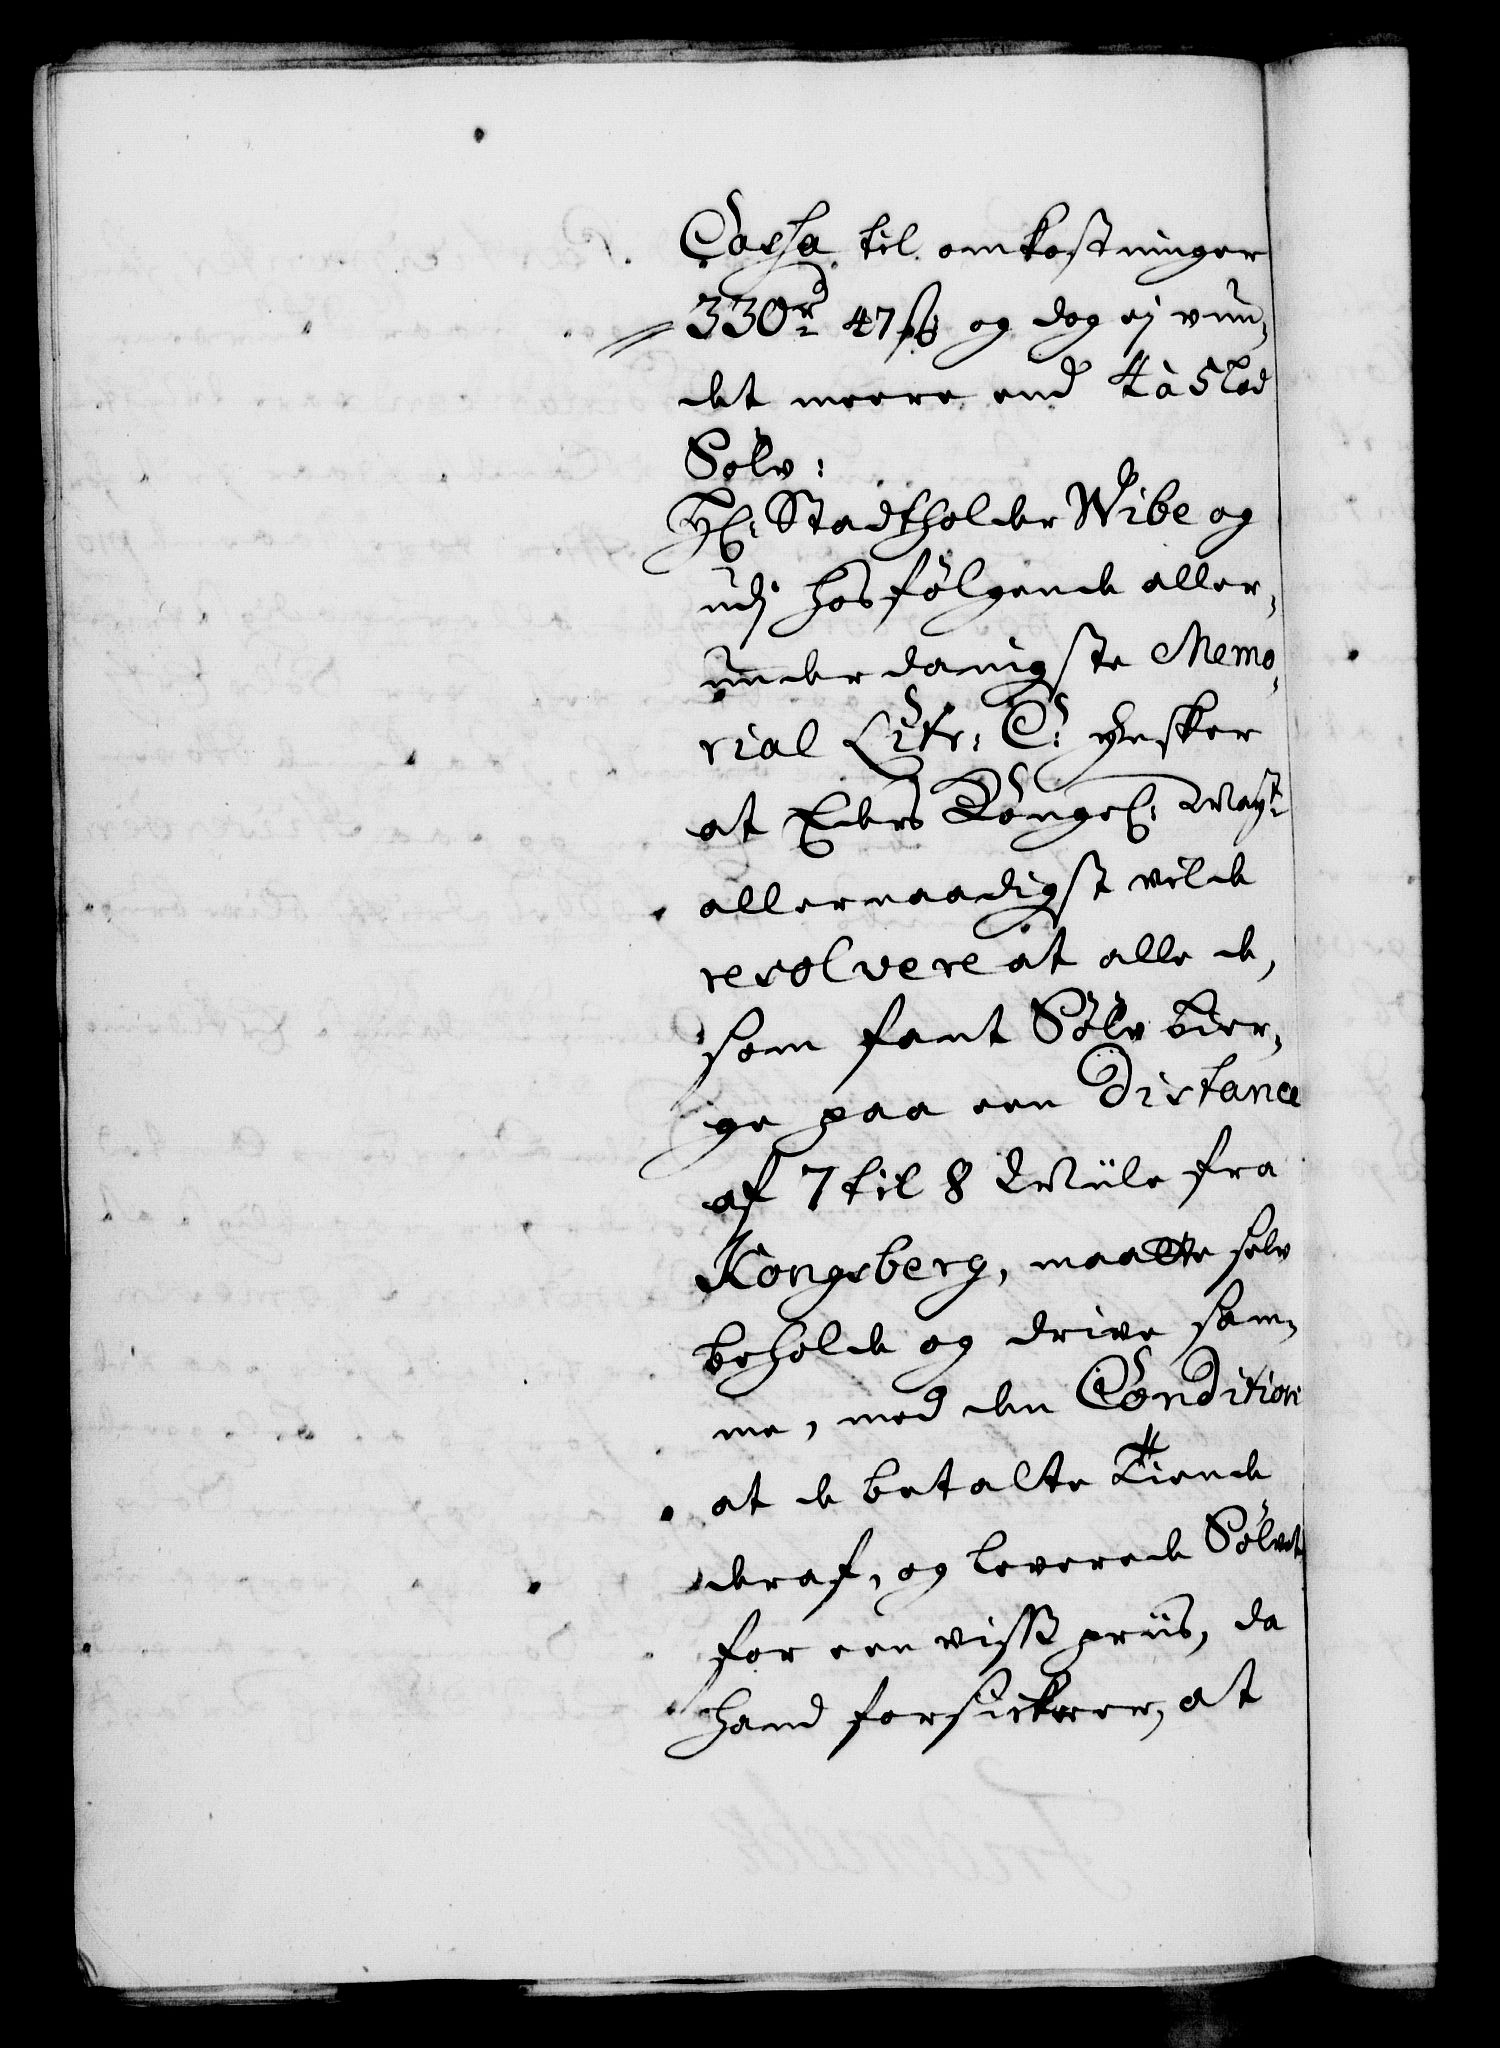 Cassa til omkostninger
330 rd 47 ß og dog ej vun,
det meere end 4 à 5 lod
Sölv:
H: Stadtholder Wibe og
udj hosfölgende aller,
underdanigste Memo,
rial Litr: C: ynsker
at Eders Kongel: May:t
allernaadigst vilde
resolvere at alle de,
som fant Sölv bier,
ge paa een Distance
af 7 til 8 Miile fra
Kongsberg, maatte selv
beholde og drive sam,
me, med den Condition
at de betalte Tiende
deraf, og leverede Sölvet
for een viss priis, da
hand forsickrer, at